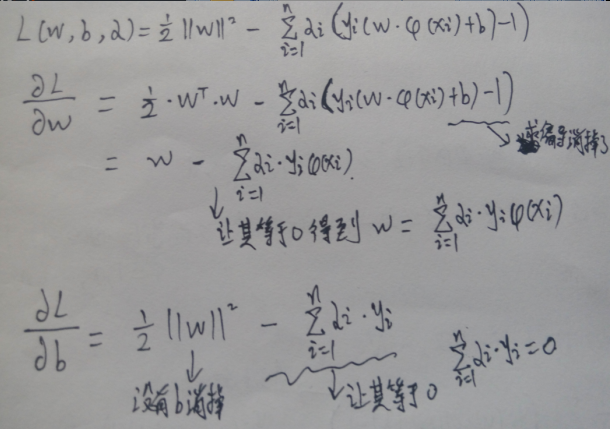 L(w,b,α) = 1/2 ||w||² - ∑_{i=1}^{n} αi (yi(w·φ(xi)+b)-1)
∂L/∂w = 1/2·wᵀ·w - ∑_{i=1}^{n} αi (yi(w·φ(xi)+b)-1)
求偏导消掉了
= w - ∑_{i=1}^{n} αi·yiφ(xi).
让其等于0得到 w = ∑_{i=1}^{n} αi·yiφ(xi)
∂L/∂b = 1/2 ||w||² - ∑_{i=1}^{n} αi·yi
没有b消掉
让其等于0
∑_{i=1}^{n} αi·yi=0